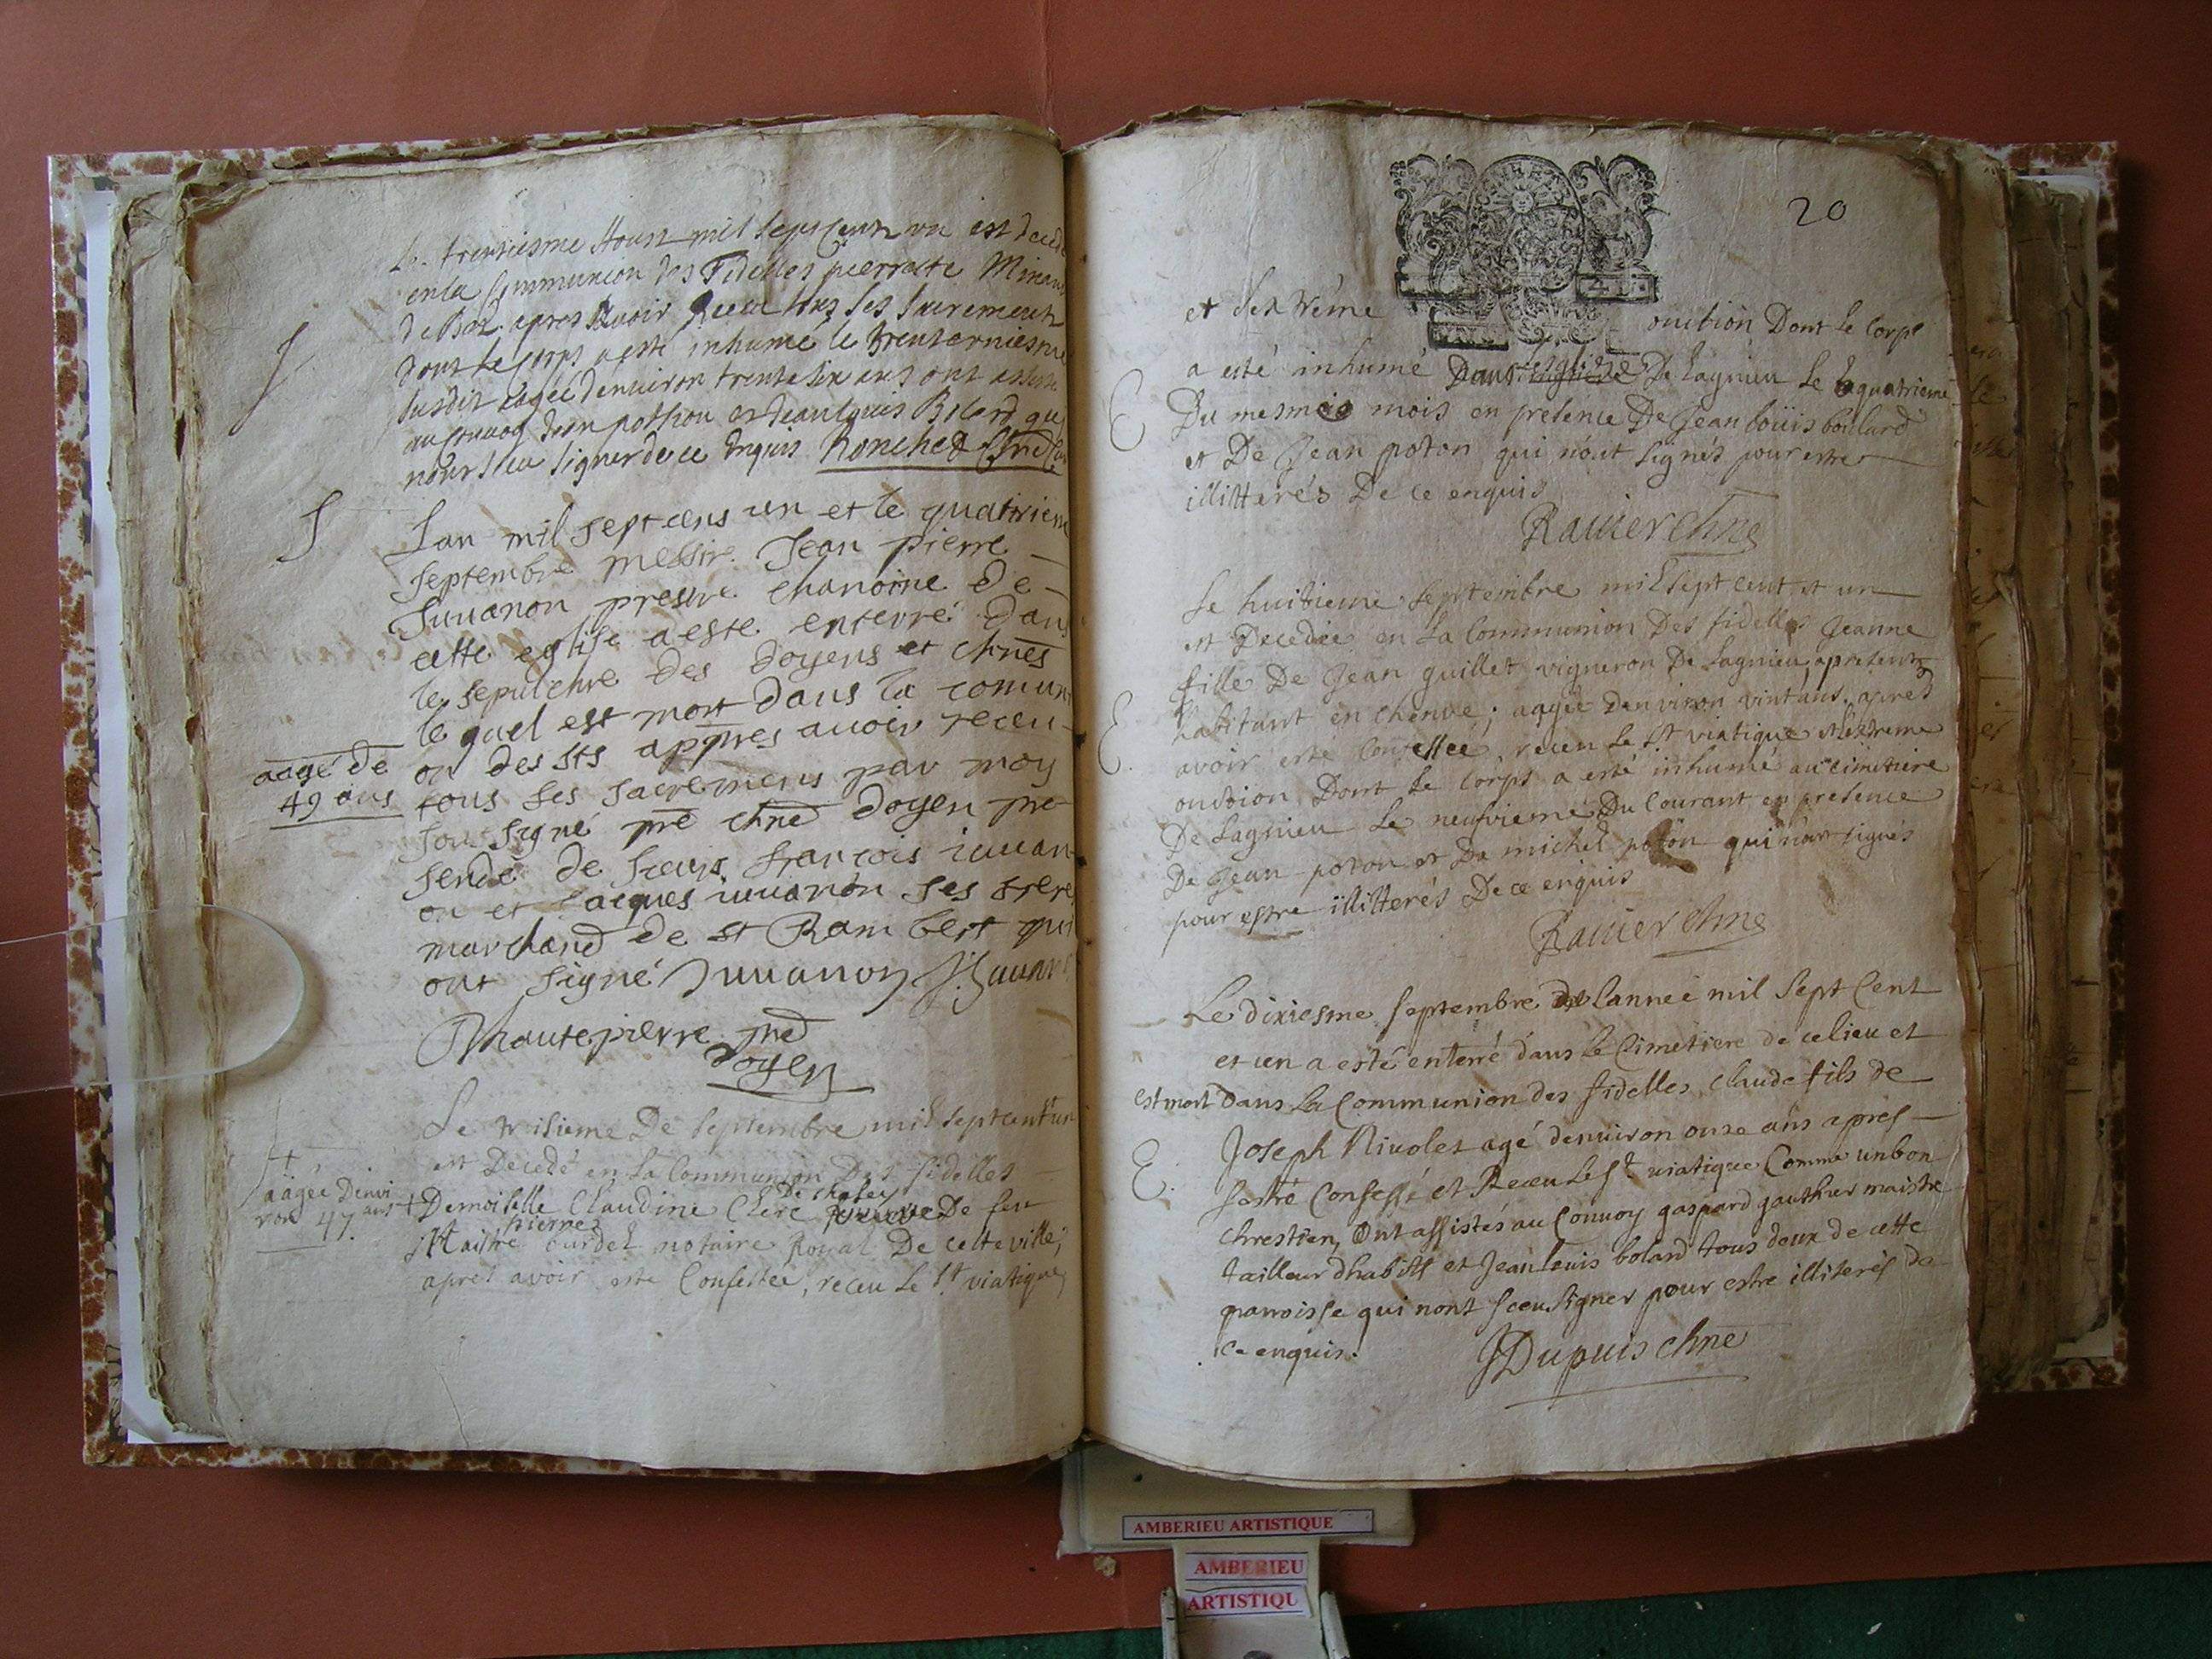 Le trentiesme Aoust mil sept cent un est decedé
en la Communion des Fidelles pierrette
de apres Avoir Receu tous ses sacrements
dont le corps a esté inhumé le
susdit aagée denviron trente six ans ont assisté
au convoy et Jean Louis Bolard qui
nont sceu signer de ce Enquis
J
J
Lan mil sept cens un et le quatriem
septembre messire Jean pierre
Juuanon prestre chanoine de
cette eglise a esté enterré dans
le sepulchre des doyens et chnes
le quel est mort dans la comuni
on des sts appres auoir receu
tous ses sacremens par moy
sousigné pre chne doyen pre
sence de sieurs françois iuuan
on et Jacques iuuanon ses frere
marchand de st Rambert qui
ont signé Juuanon J. Juuanon
aagé de
49 ans
hautepierre pre
doyen
Le troisieme De septembre mil sept cent et un
est Decedé en la Communion Des fidelles
+ Demoiselle Claudine Clerc De feu
Maistre notaire Royal De cette ville,
apres avoir esté Confessée, receu le st viatique,
+
aagée Denvi
ron 47 ans
20
et lextrême onction Dont le corps
a esté inhumé Dans leglise De lagnieu le quatrieme
Du mesme mois en presence De Jean loüis boulard
et De Jean poton qui n'ont signés pour estre
illitterés De ce enquis
Rauier chne
Le huitieme septembre mil sept cent et un
est Decedée en la Communion Des fidelles Jeanne
fille De Jean guillet vigneron De lagnieu apresent
habitant en chenve; aagée denviron vint ans, apres
avoir esté Confessée, receu le st viatique et lextreme
onction Dont le corps a esté inhumé au cimetiere
De lagnieu le neufvieme Du Courant en presence
De Jean poton et De michel poton qui n'ont signés
pour estre illitterés De ce enquis
Rauier chne
Le dixiesme septembre de lannée mil sept Cent
et un a esté enterré dans le Cimetiere de ce lieu et
est mort dans la Communion des fidelles, claude fils de
Joseph Niuolet agé denuiron onze ans apres
sestré Confessé et Receu le st uiatique Comme un bon
chrestien, Ont assistés au Conuoy gaspard gauthier maistre
tailleur dhabits et Jean louis bolard tous deux de cette
parroisse qui nont sceu signer pour estre illiterés de
ce enquis.
JDupuis chne
AMBERIEU ARTISTIQUE
AMBERIEU
ARTISTIQU